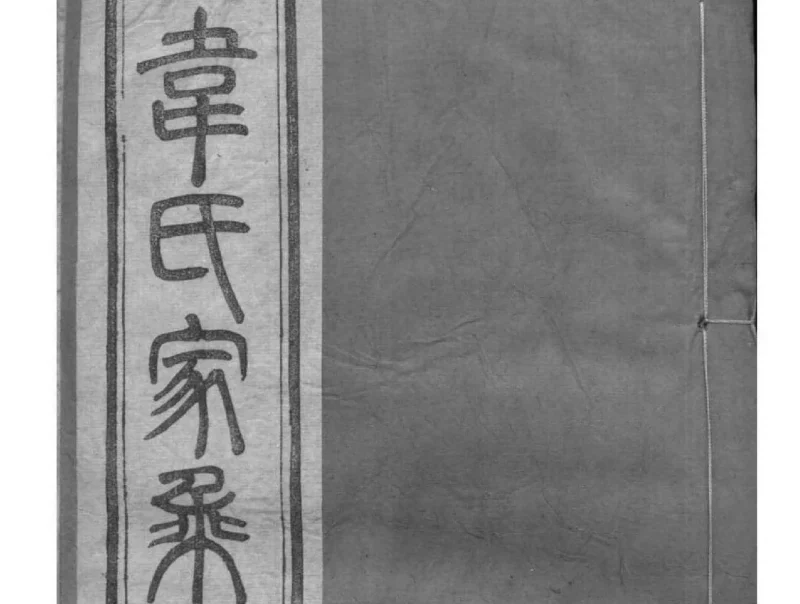 韋氏家乘